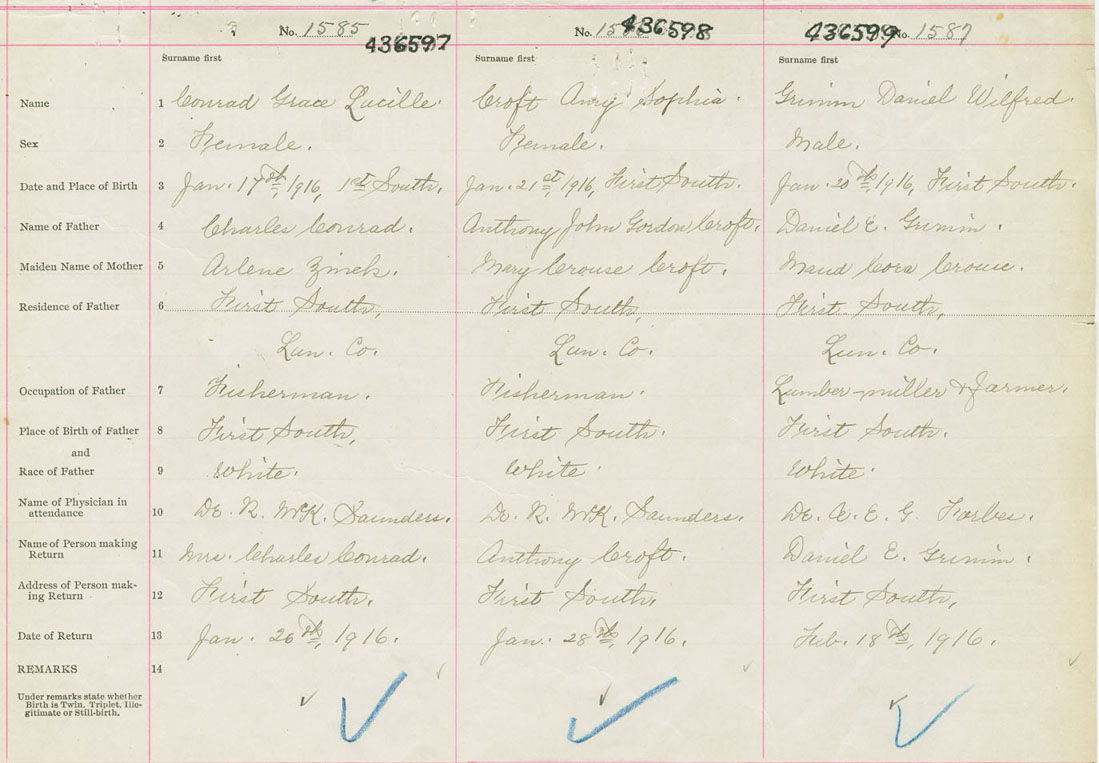 No. 1585 436597 No. 158 436598 436599 No. 1587
Surname first Surname first Surname first
Name 1 Conrad Grace Lucille. Croft Amy Sophia. Grimm Daniel Wilfred.
Sex 2 Female. Female. Male.
Date and Place of Birth 3 Jan. 17th, 1916, 1st South. Jan. 21st, 1916, First South. Jan. 20th, 1916, First South.
Name of Father 4 Charles Conrad. Anthony John Gordon Croft. Daniel E. Grimm.
Maiden Name of Mother 5 Arlene Zinck. Mary Crouse Croft. Maud Cora Crouse.
Residence of Father 6 First South, First South, First South,
Lun. Co. Lun. Co. Lun. Co.
Occupation of Father 7 Fisherman. Fisherman. Lumber-miller & farmer.
Place of Birth of Father 8 First South, First South. First South.
and
Race of Father 9 White. White. White.
Name of Physician in
attendance 10 Dr. R. McK. Saunders. Dr. R. McK. Saunders. Dr. A. E. G. Forbes.
Name of Person making
Return 11 Mrs. Charles Conrad. Anthony Croft. Daniel E. Grimm.
Address of Person mak-
ing Return 12 First South. First South. First South,
Date of Return 13 Jan. 26th, 1916. Jan. 28th, 1916. Feb. 18th, 1916.
REMARKS 14
Under remarks state whether
Birth is Twin, Triplet, Ille-
gitimate or Still-birth.